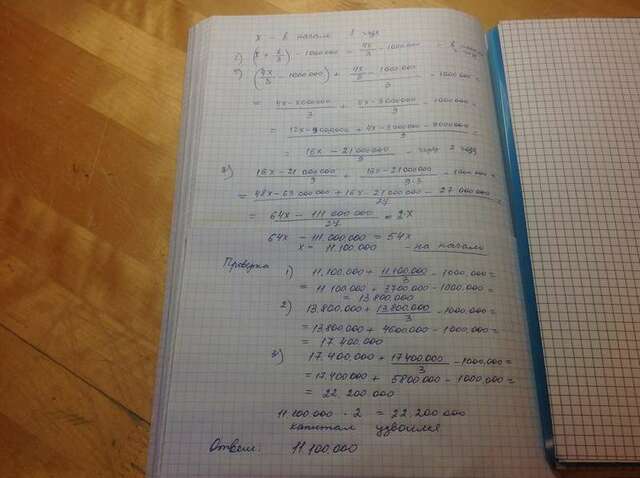 x - в начале 1 года
1) (x + x/3) - 1000000 = 4x/3 - 1000000 =
2) (4x/3 - 1000000) + 4x/3 - 1000000/3 - 1000000 =
= 4x-3000000/3 + 4x-3000000/9 - 1000000 =
= 12x-9000000+4x-3000000-9000000/9 =
= 16x-21000000/9 - через 2 года
3) 16x-21000000/9 + 16x-21000000/9·3 - 1000000 =
= 48x-63 000 000+16x-21 000 000-27 000 000/27 =
= 64x-111 000 000/27 = 2x
64x - 111.000.000 = 54x
x = 11.100.000 - на начало
Проверка
1) 11.100.000 + 11.100.000/3 - 1000.000 =
= 11 100.000 + 3700.000 - 1000.000 =
= 13.800.000
2) 13.800.000 + 13.800.000/3 - 1000.000 =
= 13.800.000 + 4600.000 - 1000.000 =
= 17 400.000
3) 17.400.000 + 17400.000/3 - 1000.000 =
= 17.400.000 + 5800.000 - 1000.000 =
= 22.200.000
11.100.000 · 2 = 22.200.000
капитал удвоился
Ответ: 11.100.000